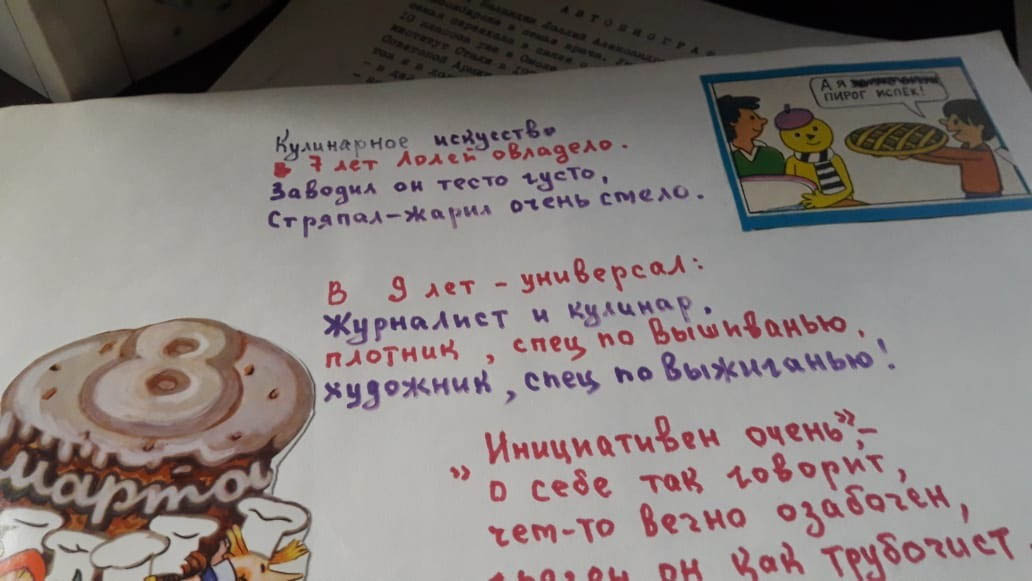 АВТОБИОГРАФ
10 классов
институт
Советской Армии
А Я
ПИРОГ ИСПЕК!
Кулинарное искусство
в 7 лет Лолей овладело.
Заводил он тесто густо,
Стряпал-жарил очень смело.
В 9 лет - универсал:
Журналист и кулинар,
плотник, спец по вышиванью,
художник, спец по выжиганью!
8
марта
"Инициативен очень",-
о себе так говорит,
чем-то вечно озабочен,
он как трубочист